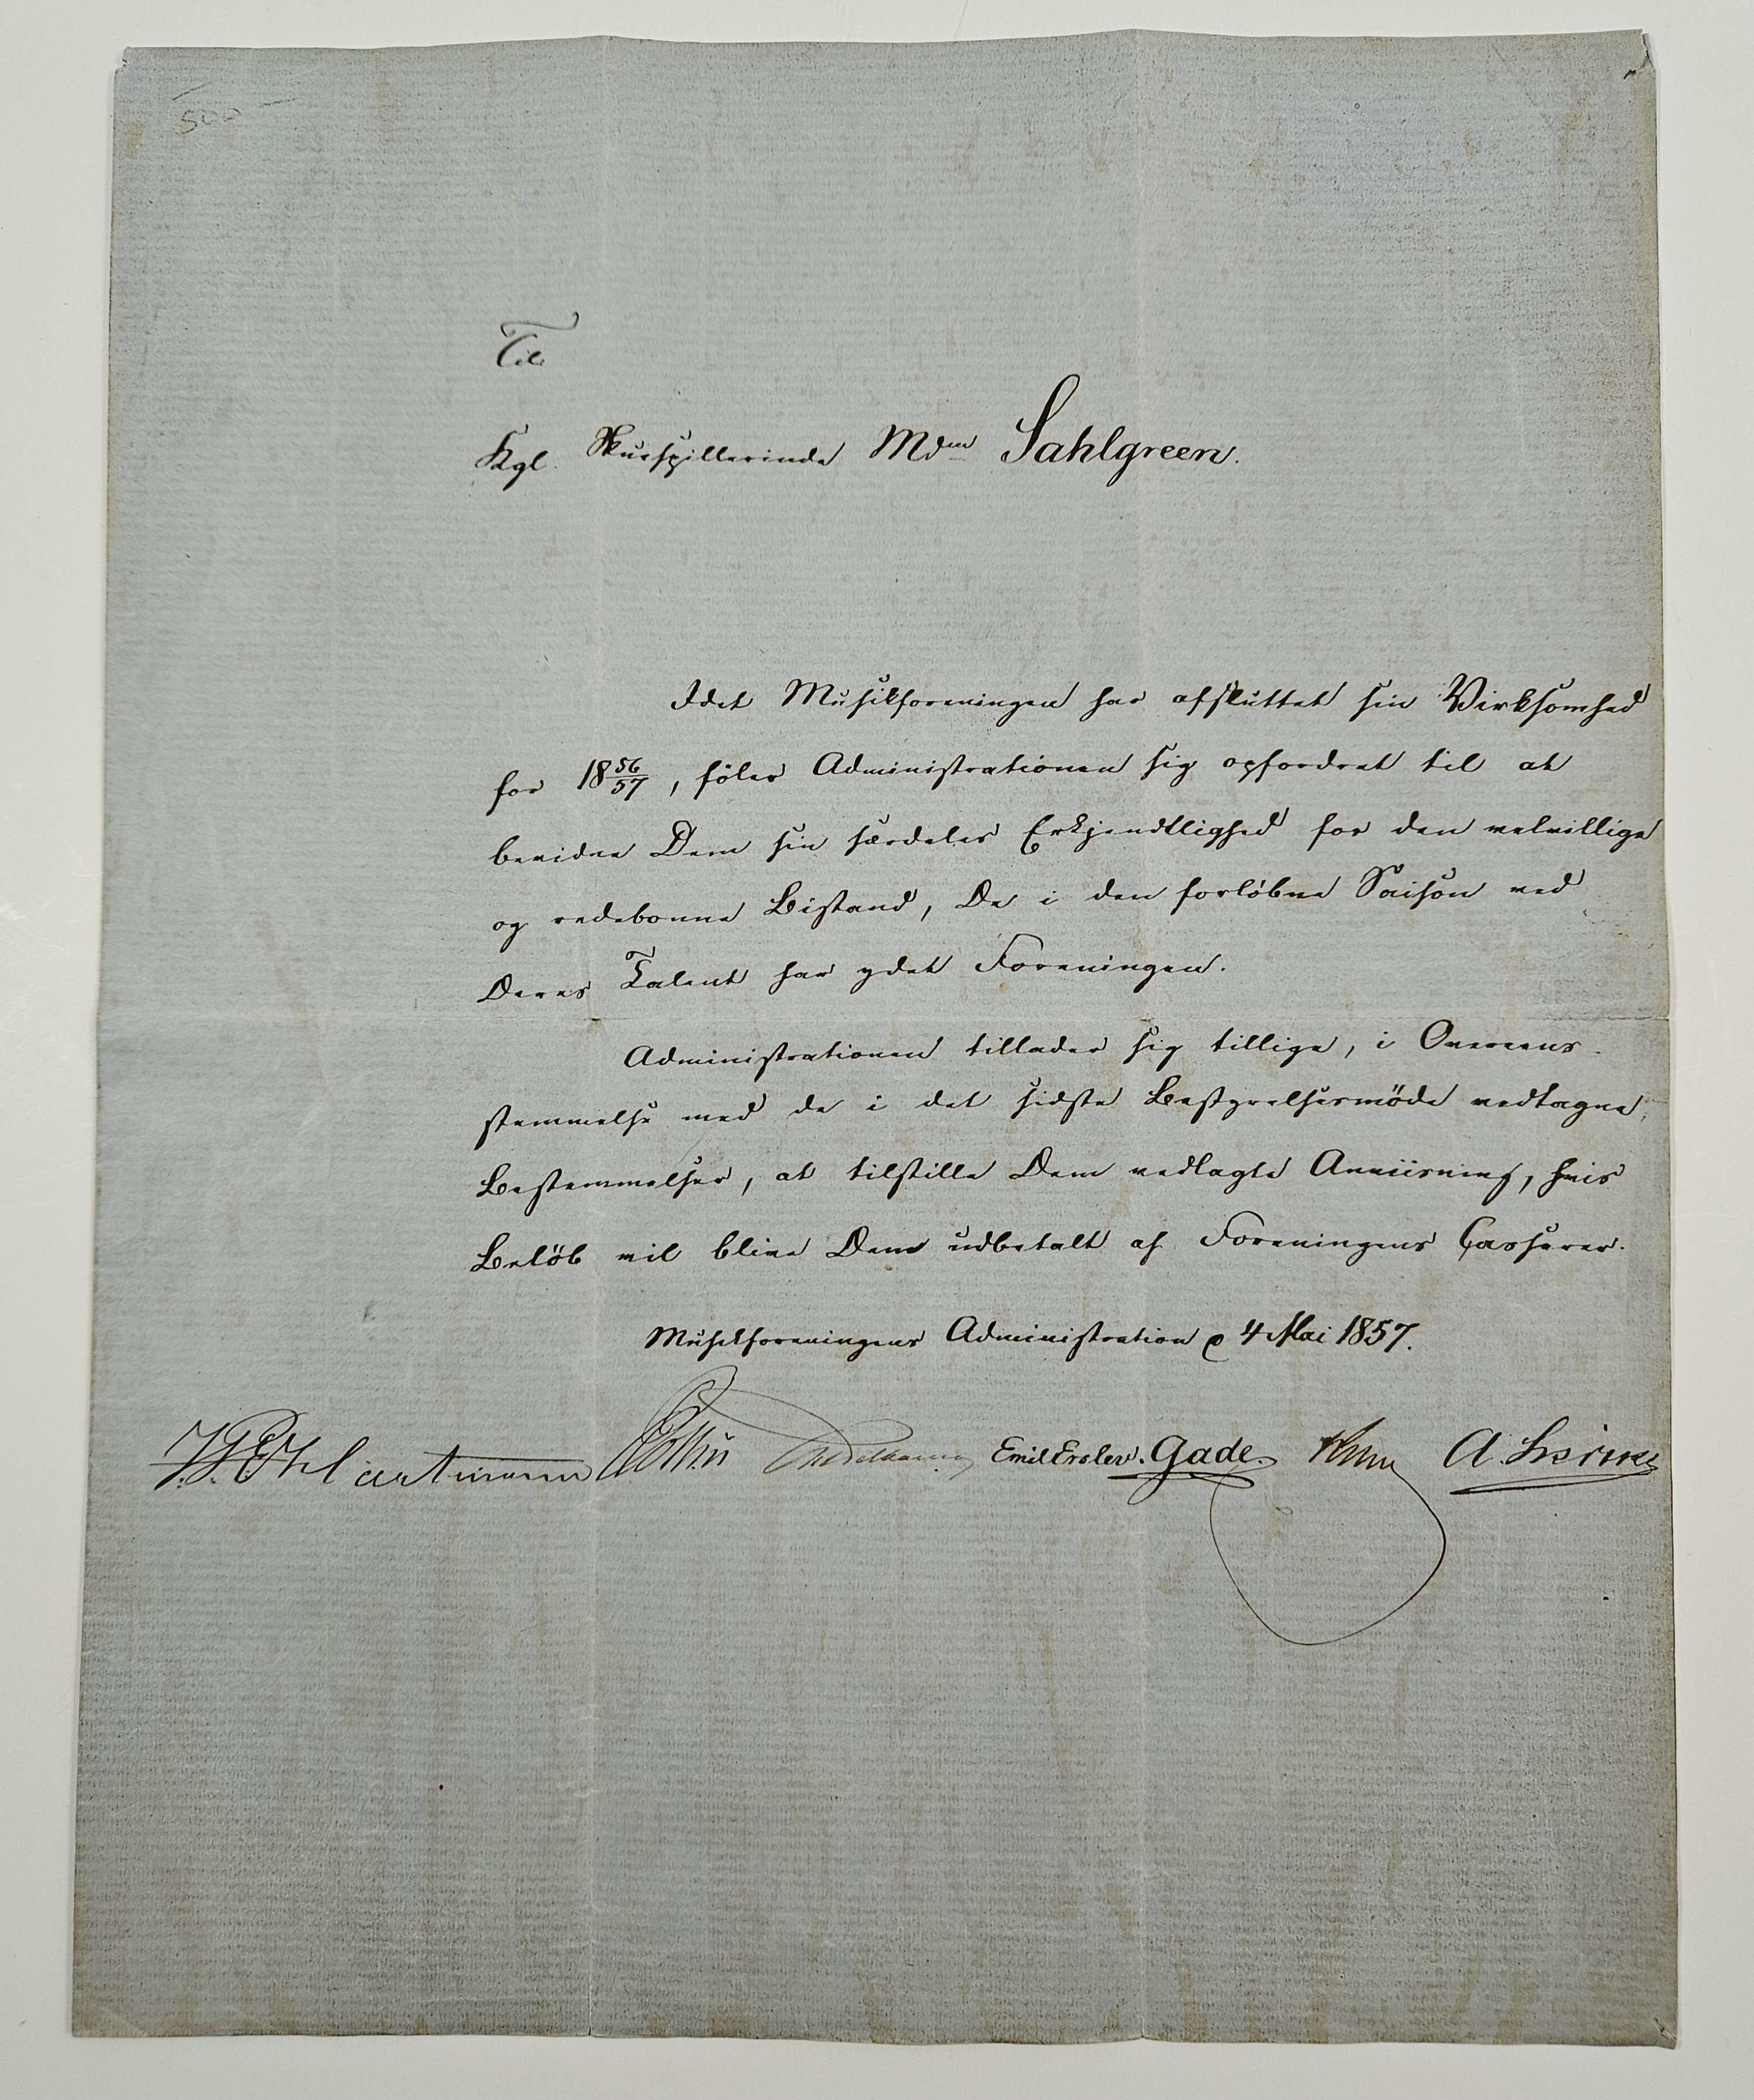 500
Til
Kgl. Skuespillerinde Mdm Sahlgreen.
Idet Musikforeningen har afsluttet sin Virksomhed
for 18 56/57, föler Administrationen sig opfordret til at
bevidne Dem sin særdeles Erkjendtlighed for den velvillige
og redebonne Bistand, De i den forløbne Saison ved
Deres Talent har ydet Foreningen.
Administrationen tillader sig tillige, i Overeens-
stemmelse med de i det sidste Bestyrelsesmöde vedtagne
Bestemmelser, at tilstille Dem vedlagte Anviisning, hvis
Belöb vil blive Dem udbetalt af Foreningens Casserer.
Musikforeningens Administration d 4 Mai 1857.
J.P.E. Hartmann Collin Emil Erslev. Gade.